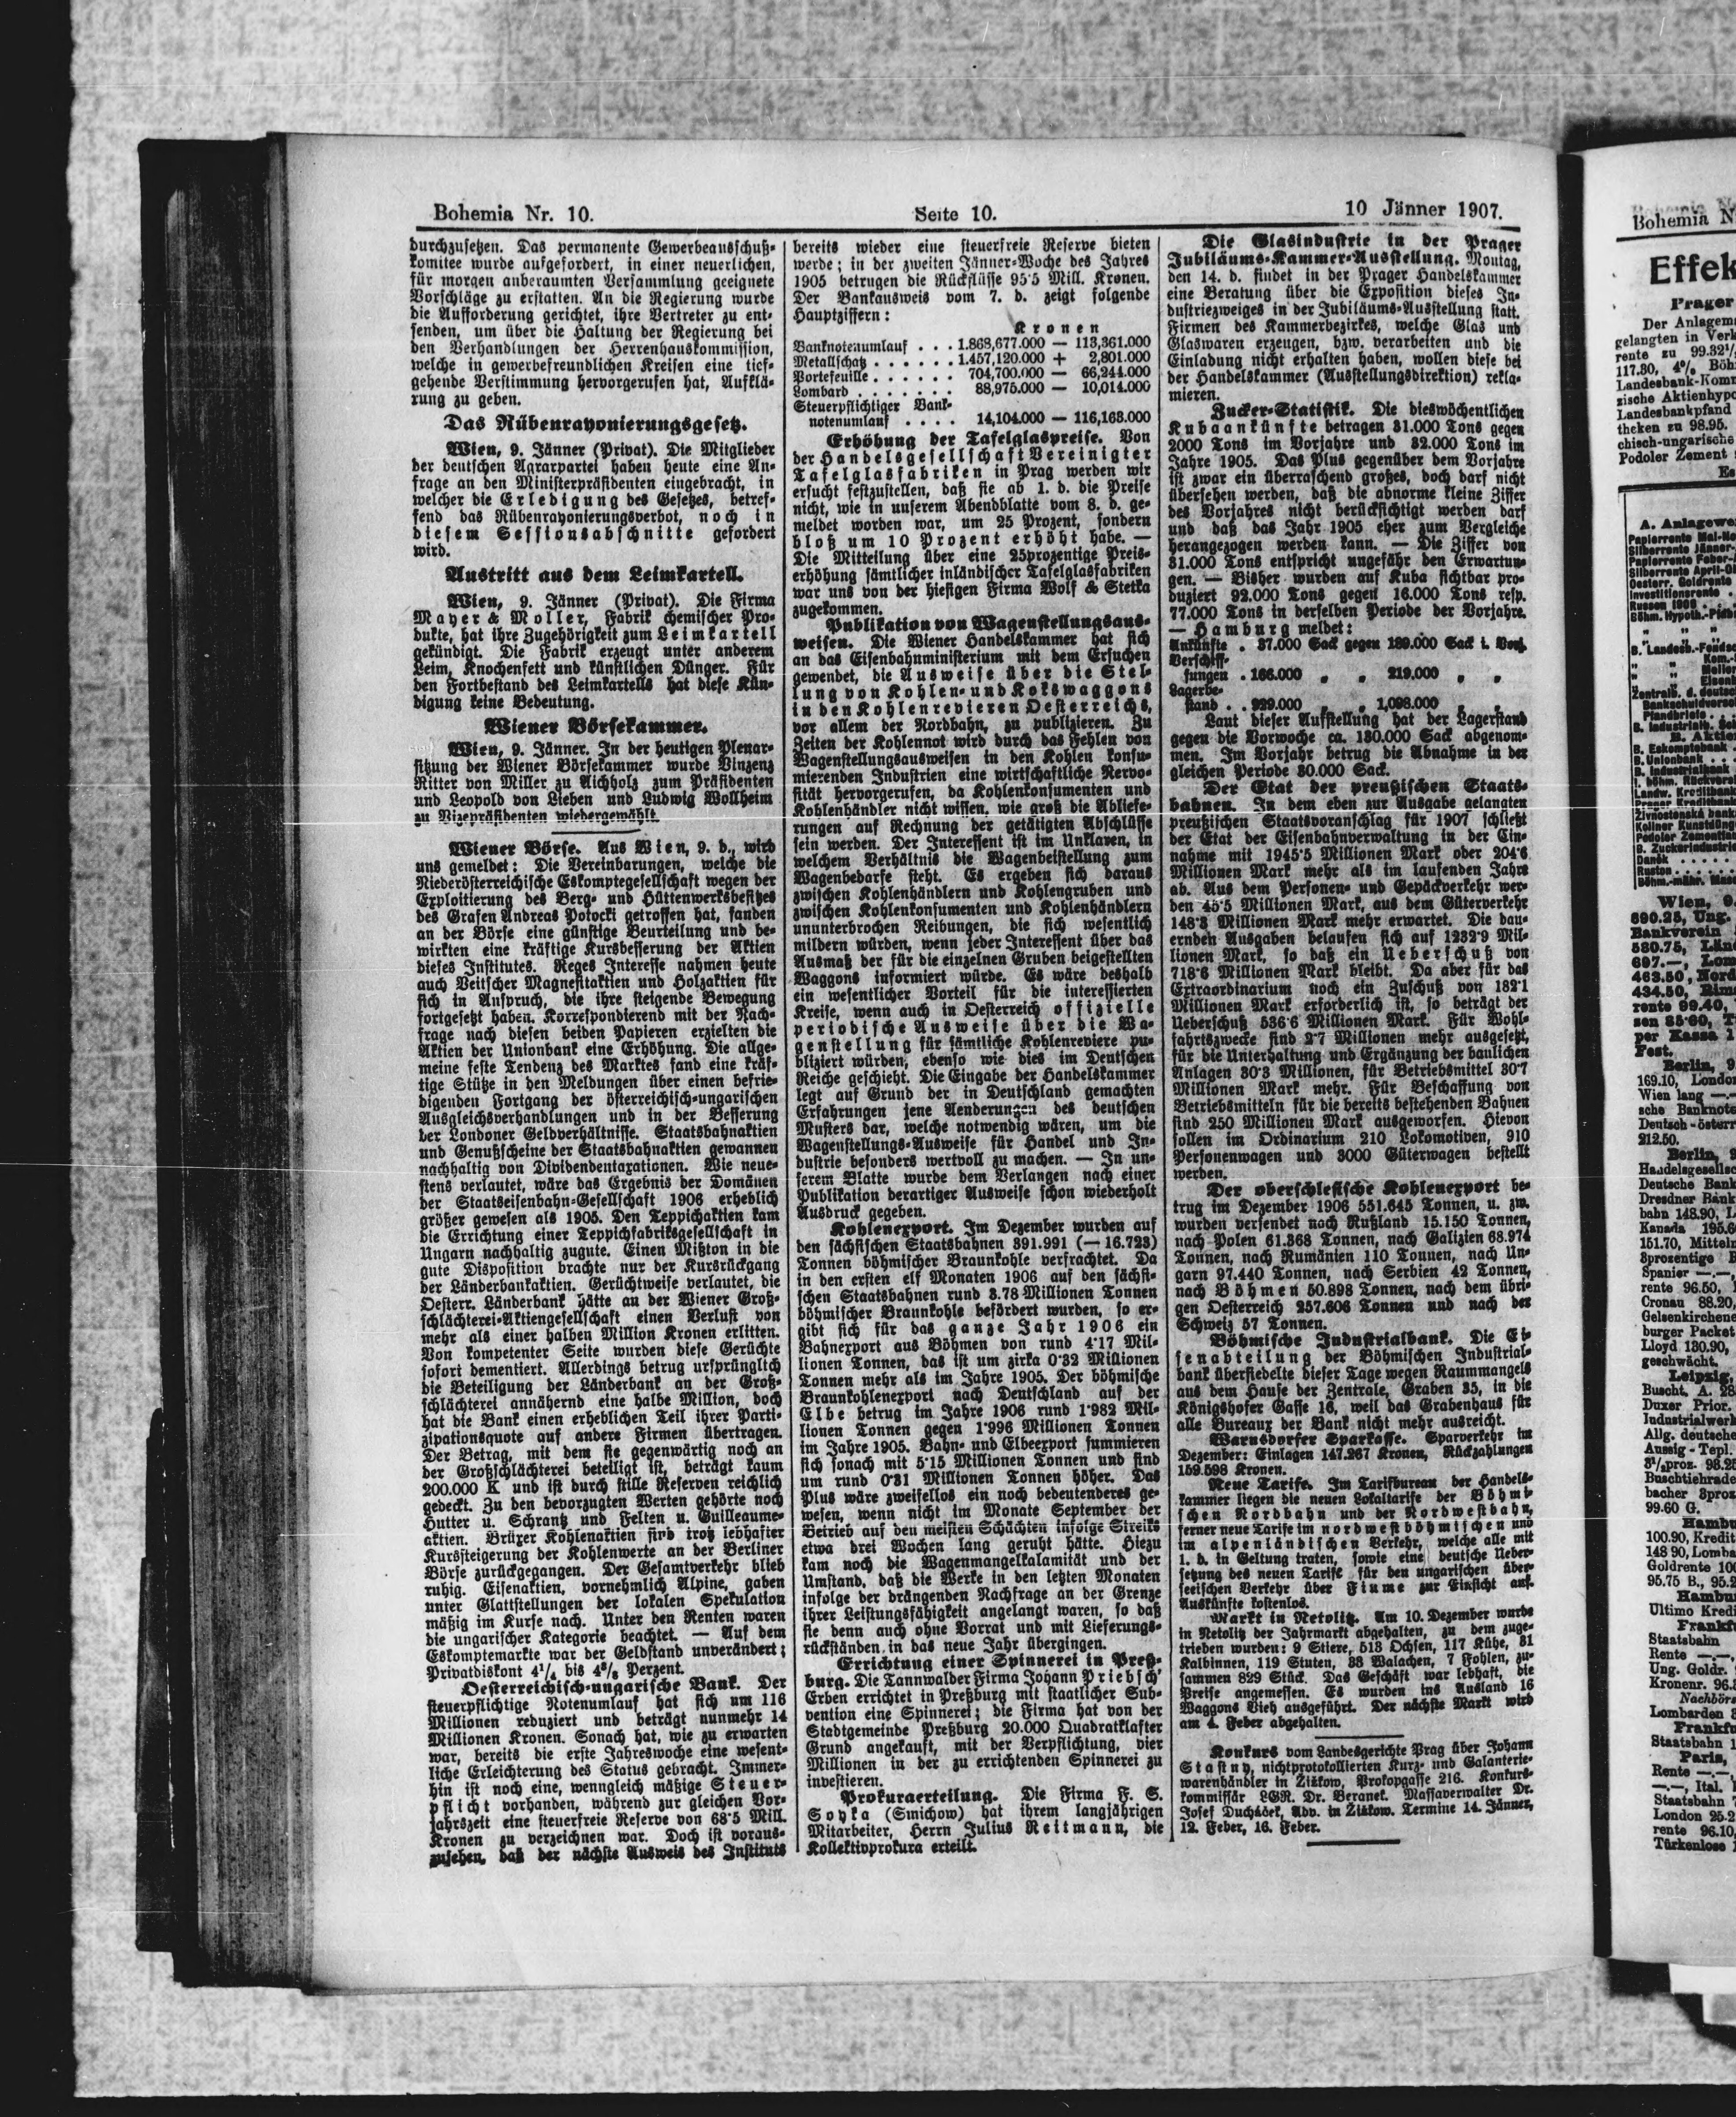 Bohemia Nr. 10.
Seite 10.
10 Jänner 1907.
durchzusetzen. Das permanente Gewerbeausschuß-
komitee wurde aufgefordert, in einer neuerlichen,
für morgen anberaumten Versammlung geeignete
Vorschläge zu erstatten. An die Regierung wurde
die Aufforderung gerichtet, ihre Vertreter zu ent-
senden, um über die Haltung der Regierung bei
den Verhandlungen der Herrenhauskommission,
welche in gewerbefreundlichen Kreisen eine tief-
gehende Verstimmung hervorgerufen hat, Aufklä-
rung zu geben.
Das Rübenrayonierungsgesetz.
Wien, 9. Jänner (Privat). Die Mitglieder
der deutschen Agrarpartei haben heute eine An-
frage an den Ministerpräsidenten eingebracht, in
welcher die Erledigung des Gesetzes, betref-
fend das Rübenrayonierungsverbot, noch in
diesem Sessionsabschnitte gefordert
wird.
Austritt aus dem Leimkartell.
Wien, 9. Jänner (Privat). Die Firma
Mayer & Moller, Fabrik chemischer Pro-
dukte, hat ihre Zugehörigkeit zum Leimkartell
gekündigt. Die Fabrik erzeugt unter anderem
Leim, Knochenfett und künstlichen Dünger. Für
den Fortbestand des Leimkartells hat diese Kün-
digung keine Bedeutung.
Wiener Börsekammer.
Wien, 9. Jänner. In der heutigen Plenar-
sitzung der Wiener Börsekammer wurde Vinzenz
Ritter von Miller zu Aichholz zum Präsidenten
und Leopold von Lieben und Ludwig Wollheim
zu Vizepräsidenten wiedergewählt.
Wiener Börse. Aus Wien, 9. d., wird
uns gemeldet: Die Vereinbarungen, welche die
Niederösterreichische Eskomptegesellschaft wegen der
Exploitierung des Berg- und Hüttenwerksbesitzes
des Grafen Andreas Potocki getroffen hat, fanden
an der Börse eine günstige Beurteilung und be-
wirkten eine kräftige Kursbesserung der Aktien
dieses Institutes. Reges Interesse nahmen heute
auch Veitscher Magnesitaktien und Holzaktien für
sich in Anspruch, die ihre steigende Bewegung
fortgesetzt haben. Korrespondierend mit der Nach-
frage nach diesen beiden Papieren erzielten die
Aktien der Unionbank eine Erhöhung. Die allge-
meine feste Tendenz des Marktes fand eine kräf-
tige Stütze in den Meldungen über einen befrie-
digenden Fortgang der österreichisch-ungarischen
Ausgleichsverhandlungen und in der Besserung
der Londoner Geldverhältnisse. Staatsbahnaktien
und Genußscheine der Staatsbahnaktien gewannen
nachhaltig von Dividendentaxationen. Wie neue-
stens verlautet, wäre das Ergebnis der Domänen
der Staatseisenbahn-Gesellschaft 1906 erheblich
größer gewesen als 1905. Den Teppichaktien kam
die Errichtung einer Teppichfabriksgesellschaft in
Ungarn nachhaltig zugute. Einen Mißton in die
gute Disposition brachte nur der Kursrückgang
der Länderbankaktien. Gerüchtweise verlautet, die
Oesterr. Länderbank hätte an der Wiener Groß-
schlächterei-Aktiengesellschaft einen Verlust von
mehr als einer halben Million Kronen erlitten.
Von kompetenter Seite wurden diese Gerüchte
sofort dementiert. Allerdings betrug ursprünglich
die Beteiligung der Länderbank an der Groß-
schlächterei annähernd eine halbe Million, doch
hat die Bank einen erheblichen Teil ihrer Parti-
zipationsquote auf andere Firmen übertragen.
Der Betrag, mit dem sie gegenwärtig noch an
der Großschlächterei beteiligt ist, beträgt kaum
200.000 K und ist durch stille Reserven reichlich
gedeckt. Zu den bevorzugten Werten gehörte noch
Hutter u. Schrantz und Felten u. Guilleaume-
aktien. Brüxer Kohlenaktien sind trotz lebhafter
Kurssteigerung der Kohlenwerte an der Berliner
Börse zurückgegangen. Der Gesamtverkehr blieb
ruhig. Eisenaktien, vornehmlich Alpine, gaben
unter Glattstellungen der lokalen Spekulation
mäßig im Kurse nach. Unter den Renten waren
die ungarischer Kategorie beachtet. — Auf dem
Eskomptemarkte war der Geldstand unverändert;
Privatdiskont 4¹/₄ bis 4³/₈ Perzent.
Oesterreichisch-ungarische Bank. Der
steuerpflichtige Notenumlauf hat sich um 116
Millionen reduziert und beträgt nunmehr 14
Millionen Kronen. Sonach hat, wie zu erwarten
war, bereits die erste Jahreswoche eine wesent-
liche Erleichterung des Status gebracht. Immer-
hin ist noch eine, wenngleich mäßige Steuer-
pflicht vorhanden, während zur gleichen Vor-
jahrszeit eine steuerfreie Reserve von 68·5 Mill.
Kronen zu verzeichnen war. Doch ist voraus-
zusehen, daß der nächste Ausweis des Instituts
bereits wieder eine steuerfreie Reserve bieten
werde; in der zweiten Jänner-Woche des Jahres
1905 betrugen die Rückflüsse 95·5 Mill. Kronen.
Der Bankausweis vom 7. d. zeigt folgende
Hauptziffern:
Kronen
Banknotenumlauf . . . 1.868,677.000 — 113,361.000
Metallschatz . . . . . . 1.457,120.000 + 2,801.000
Portefeuille . . . . . . 704,700.000 — 66,244.000
Lombard . . . . . . . 88,975.000 — 10,014.000
Steuerpflichtiger Bank-
notenumlauf . . . . 14,104.000 — 116,163.000
Erhöhung der Tafelglaspreise. Von
der Handelsgesellschaft Vereinigter
Tafelglasfabriken in Prag werden wir
ersucht festzustellen, daß sie ab 1. d. die Preise
nicht, wie in unserem Abendblatte vom 8. d. ge-
meldet worden war, um 25 Prozent, sondern
bloß um 10 Prozent erhöht habe. —
Die Mitteilung über eine 25prozentige Preis-
erhöhung sämtlicher inländischer Tafelglasfabriken
war uns von der hiesigen Firma Wolf & Stetka
zugekommen.
Publikation von Wagenstellungsaus-
weisen. Die Wiener Handelskammer hat sich
an das Eisenbahnministerium mit dem Ersuchen
gewendet, die Ausweise über die Stel-
lung von Kohlen- und Kokswaggons
in den Kohlenrevieren Oesterreichs,
vor allem der Nordbahn, zu publizieren. Zu
Zeiten der Kohlennot wird durch das Fehlen von
Wagenstellungsausweisen in den Kohlen konsu-
mierenden Industrien eine wirtschaftliche Nervo-
sität hervorgerufen, da Kohlenkonsumenten und
Kohlenhändler nicht wissen, wie groß die Abliefe-
rungen auf Rechnung der getätigten Abschlüsse
sein werden. Der Interessent ist im Unklaren, in
welchem Verhältnis die Wagenbeistellung zum
Wagenbedarfe steht. Es ergeben sich daraus
zwischen Kohlenhändlern und Kohlengruben und
zwischen Kohlenkonsumenten und Kohlenhändlern
ununterbrochen Reibungen, die sich wesentlich
mildern würden, wenn jeder Interessent über das
Ausmaß der für die einzelnen Gruben beigestellten
Waggons informiert würde. Es wäre deshalb
ein wesentlicher Vorteil für die interessierten
Kreise, wenn auch in Oesterreich offizielle
periodische Ausweise über die Wa-
genstellung für sämtliche Kohlenreviere pu-
bliziert würden, ebenso wie dies im Deutschen
Reiche geschieht. Die Eingabe der Handelskammer
legt auf Grund der in Deutschland gemachten
Erfahrungen jene Aenderungen des deutschen
Musters dar, welche notwendig wären, um die
Wagenstellungs-Ausweise für Handel und In-
dustrie besonders wertvoll zu machen. — In un-
serem Blatte wurde dem Verlangen nach einer
Publikation derartiger Ausweise schon wiederholt
Ausdruck gegeben.
Kohlenexport. Im Dezember wurden auf
den sächsischen Staatsbahnen 391.991 (— 16.723)
Tonnen böhmischer Braunkohle verfrachtet. Da
in den ersten elf Monaten 1906 auf den sächsi-
schen Staatsbahnen rund 3.78 Millionen Tonnen
böhmischer Braunkohle befördert wurden, so er-
gibt sich für das ganze Jahr 1906 ein
Bahnexport aus Böhmen von rund 4·17 Mil-
lionen Tonnen, das ist um zirka 0·32 Millionen
Tonnen mehr als im Jahre 1905. Der böhmische
Braunkohlenexport nach Deutschland auf der
Elbe betrug im Jahre 1906 rund 1·982 Mil-
lionen Tonnen gegen 1·996 Millionen Tonnen
im Jahre 1905. Bahn- und Elbeexport summieren
sich sonach mit 5·15 Millionen Tonnen und sind
um rund 0·31 Millionen Tonnen höher. Das
Plus wäre zweifellos ein noch bedeutenderes ge-
wesen, wenn nicht im Monate September der
Betrieb auf den meisten Schächten infolge Streiks
etwa drei Wochen lang geruht hätte. Hiezu
kam noch die Wagenmangelkalamität und der
Umstand, daß die Werke in den letzten Monaten
infolge der drängenden Nachfrage an der Grenze
ihrer Leistungsfähigkeit angelangt waren, so daß
sie denn auch ohne Vorrat und mit Lieferungs-
rückständen in das neue Jahr übergingen.
Errichtung einer Spinnerei in Preß-
burg. Die Tannwalder Firma Johann Priebsch'
Erben errichtet in Preßburg mit staatlicher Sub-
vention eine Spinnerei; die Firma hat von der
Stadtgemeinde Preßburg 20.000 Quadratklafter
Grund angekauft, mit der Verpflichtung, vier
Millionen in der zu errichtenden Spinnerei zu
investieren.
Prokuraerteilung. Die Firma F. S.
Soyka (Smichow) hat ihrem langjährigen
Mitarbeiter, Herrn Julius Reitmann, die
Kollektivprokura erteilt.
Die Glasindustrie in der Prager
Jubiläums-Kammer-Ausstellung. Montag,
den 14. d. findet in der Prager Handelskammer
eine Beratung über die Exposition dieses In-
dustriezweiges in der Jubiläums-Ausstellung statt.
Firmen des Kammerbezirkes, welche Glas und
Glaswaren erzeugen, bzw. verarbeiten und die
Einladung nicht erhalten haben, wollen diese bei
der Handelskammer (Ausstellungsdirektion) rekla-
mieren.
Zucker-Statistik. Die dieswöchentlichen
Kubaankünfte betragen 31.000 Tons gegen
2000 Tons im Vorjahre und 32.000 Tons im
Jahre 1905. Das Plus gegenüber dem Vorjahre
ist zwar ein überraschend großes, doch darf nicht
übersehen werden, daß die abnorme kleine Ziffer
des Vorjahres nicht berücksichtigt werden darf
und daß das Jahr 1905 eher zum Vergleiche
herangezogen werden kann. — Die Ziffer von
31.000 Tons entspricht ungefähr den Erwartun-
gen. — Bisher wurden auf Kuba sichtbar pro-
duziert 92.000 Tons gegen 16.000 Tons resp.
77.000 Tons in derselben Periode der Vorjahre.
— Hamburg meldet:
Ankünfte . 37.000 Sack gegen 189.000 Sack i. Vorj.
Verschiff-
fungen . 166.000 „ „ 219.000 „ „
Lagerbe-
stand . . 929.000 „ „ 1,098.000 „ „
Laut dieser Aufstellung hat der Lagerstand
gegen die Vorwoche ca. 130.000 Sack abgenom-
men. Im Vorjahr betrug die Abnahme in der
gleichen Periode 30.000 Sack.
Der Etat der preußischen Staats-
bahnen. In dem eben zur Ausgabe gelangten
preußischen Staatsvoranschlag für 1907 schließt
der Etat der Eisenbahnverwaltung in der Ein-
nahme mit 1945·5 Millionen Mark oder 204·6
Millionen Mark mehr als im laufenden Jahre
ab. Aus dem Personen- und Gepäckverkehr wer-
den 45·5 Millionen Mark, aus dem Güterverkehr
148·3 Millionen Mark mehr erwartet. Die dau-
ernden Ausgaben belaufen sich auf 1232·9 Mil-
lionen Mark, so daß ein Ueberschuß von
718·6 Millionen Mark bleibt. Da aber für das
Extraordinarium noch ein Zuschuß von 182·1
Millionen Mark erforderlich ist, so beträgt der
Ueberschuß 536·6 Millionen Mark. Für Wohl-
fahrtszwecke sind 2·7 Millionen mehr ausgesetzt,
für die Unterhaltung und Ergänzung der baulichen
Anlagen 30·3 Millionen, für Betriebsmittel 30·7
Millionen Mark mehr. Für Beschaffung von
Betriebsmitteln für die bereits bestehenden Bahnen
sind 250 Millionen Mark ausgeworfen. Hievon
sollen im Ordinarium 210 Lokomotiven, 910
Personenwagen und 3000 Güterwagen bestellt
werden.
Der oberschlesische Kohlenexport be-
trug im Dezember 1906 551.645 Tonnen, u. zw.
wurden versendet nach Rußland 15.150 Tonnen,
nach Polen 61.368 Tonnen, nach Galizien 68.974
Tonnen, nach Rumänien 110 Tonnen, nach Un-
garn 97.440 Tonnen, nach Serbien 42 Tonnen,
nach Böhmen 50.898 Tonnen, nach dem übri-
gen Oesterreich 257.606 Tonnen und nach der
Schweiz 57 Tonnen.
Böhmische Industrialbank. Die Ei-
senabteilung der Böhmischen Industrial-
bank übersiedelte dieser Tage wegen Raummangels
aus dem Hause der Zentrale, Graben 35, in die
Königshofer Gasse 16, weil das Grabenhaus für
alle Bureaux der Bank nicht mehr ausreicht.
Warnsdorfer Sparkasse. Sparverkehr im
Dezember: Einlagen 147.267 Kronen, Rückzahlungen
159.598 Kronen.
Neue Tarife. Im Tarifbureau der Handels-
kammer liegen die neuen Lokaltarife der Böhmi-
schen Nordbahn und der Nordwestbahn,
ferner neue Tarife im nordwestböhmischen und
im alpenländischen Verkehr, welche alle mit
1. d. in Geltung traten, sowie eine deutsche Ueber-
setzung des neuen Tarifs für den ungarischen über-
seeischen Verkehr über Fiume zur Einsicht auf.
Auskünfte kostenlos.
Markt in Netolitz. Am 10. Dezember wurde
in Netolitz der Jahrmarkt abgehalten, zu dem zuge-
trieben wurden: 9 Stiere, 513 Ochsen, 117 Kühe, 31
Kalbinnen, 119 Stuten, 33 Walachen, 7 Fohlen, zu-
sammen 829 Stück. Das Geschäft war lebhaft, die
Preise angemessen. Es wurden ins Ausland 16
Waggons Vieh ausgeführt. Der nächste Markt wird
am 4. Feber abgehalten.
Konkurs vom Landesgerichte Prag über Johann
Stastny, nichtprotokollierten Kurz- und Galanterie-
warenhändler in Žižkow, Prokopgasse 216. Konkurs-
kommissär LGR. Dr. Beranek. Massaverwalter Dr.
Josef Ducháček, Adv. in Žižkow. Termine 14. Jänner,
12. Feber, 16. Feber.
Bohemia N
Effek
Prager
Der Anlagem
gelangten in Verk
rente zu 99.32¹/
117.30, 4% Böh
Landesbank-Kom
zische Aktienhypo
Landesbankpfand
theken zu 98.95.
chisch-ungarische
Podoler Zement
Es
A. Anlagewe
Papierrente Mai-No
Silberrente Jänner-
Papierrente Feber-
Silberrente April-O
Oesterr. Goldrente
Investitionsrente .
Russen 1906 . . .
Böhm. Hypoth.-Pfdb
B. Landesb.-Fonds
Kom.-
Melior
Eisenb
Zentralb. d. deutsc
Bankschuldversc
Pfandbriefe . .
B. Industrialb. Sch
B. Aktien
B. Eskomptebank
B. Unionbank . . .
B. Industrialbank
I. böhm. Rückversi
Landw. Kreditbank
Prager Kreditbank
Živnostenská banka
Koliner Kunstdüng
Podoler Zementfab
B. Zuckerindustrie
Danĕk . . . . . .
Ruston . . . . .
Böhm.-mähr. Masc
Wien, 9.
690.25, Ung.
Bankverein
580.75, Län
697.—, Lom
463.50, Nord
434.50, Rim
rente 99.40,
sen 85·60, T
per Kassa 1
Fest.
Berlin, 9
169.10, London
Wien lang —.—
sche Banknote
Deutsch-österr
212.50.
Berlin, 9
Handelsgesellsc
Deutsche Bank
Dresdner Bank
bahn 148.90, L
Kanada 195.6
151.70, Mitteln
3prozentige R
Spanier —.—,
rente 96.50, 1
Cronau 88.20,
Gelsenkirchene
burger Packet
Lloyd 130.90,
geschwächt.
Leipzig,
Buscht. A. 28
Duxer Prior.
Industrialwerk
Allg. deutsche
Aussig-Tepl.
3¹/₂proz. 98.25
Buschtiehrade
bacher 3proz
99.60 G.
Hambu
100.90, Kredit
148 90, Lomba
Goldrente 100
95.75 B., 95.2
Hambu
Ultimo Kredi
Frankf
Staatsbahn
Rente —.—,
Ung. Goldr.
Kronenr. 96.3
Nachbörs
Lombarden 3
Frankfu
Staatsbahn 1
Paris,
Rente —.—,
—.—, Ital.
Staatsbahn 7
London 25.2
rente 96.10,
Türkenlose